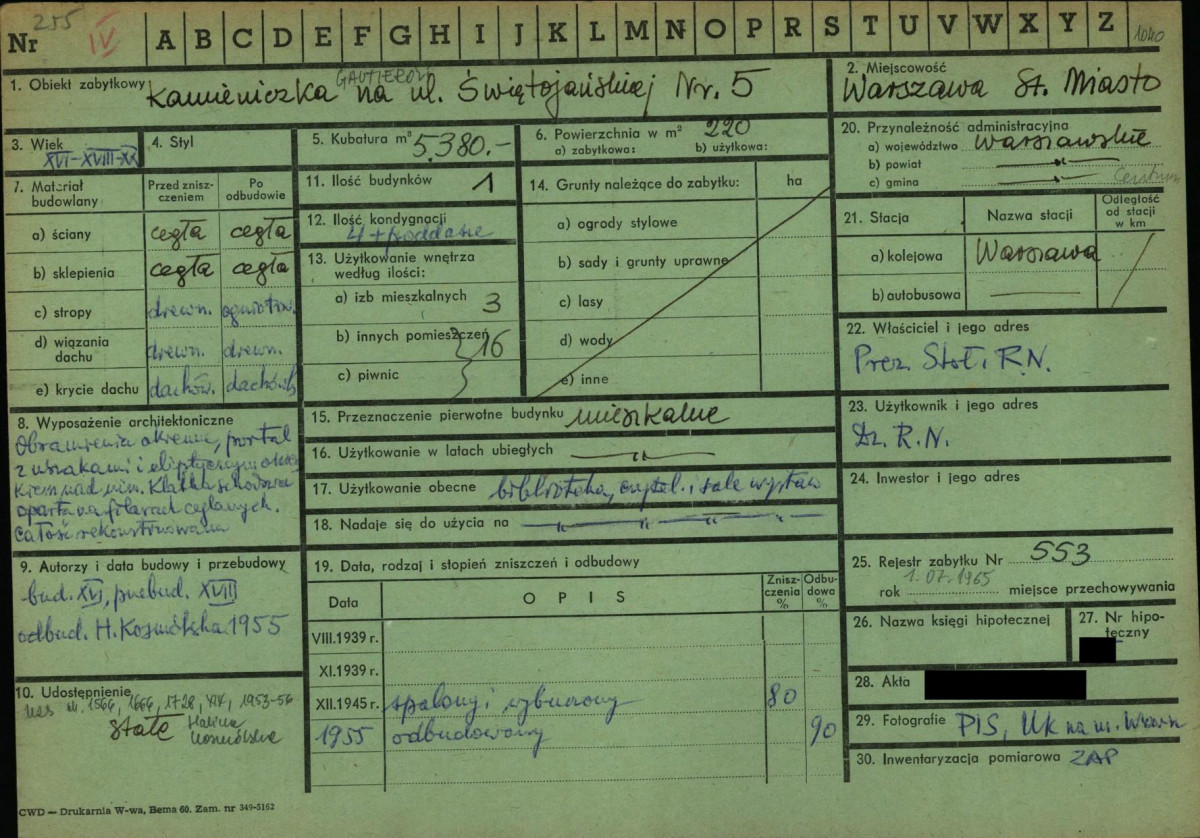 Nr 255 IV A B C D E F G H I J K L M N O P R S T U V W X Y Z 1040
1. Obiekt zabytkowy Kamieniczka GAUTIERÓW na ul. Świętojańskiej Nr. 5
2. Miejscowość
Warszawa St. Miasto
3. Wiek
XVI-XVIII-XX
4. Styl
5. Kubatura m³ 5.380.-
6. Powierzchnia w m² 220
a) zabytkowa: b) użytkowa:
7. Materiał budowlany
Przed zniszczeniem
Po odbudowie
a) ściany cegła cegła
b) sklepienia cegła cegła
c) stropy drewn. ogniotrw.
d) wiązania dachu drewn. drewn.
e) krycie dachu dachów. dachówk
8. Wyposażenie architektoniczne
Obramienia okienne, portal
z uszakami i eliptycznym okien
kiem nad nim. Klatka schodowa
oparta na filarach ceglanych.
Całość rekonstruowana
9. Autorzy i data budowy i przebudowy
bud. XVI, przebud. XVIII
odbud. H. Kosmólska 1955
10. Udostępnienie
1566, 1666, 1728, XIX, 1953-56
Stałe Halina
Kosmólska
11. Ilość budynków 1
12. Ilość kondygnacji
4 + poddasze
13. Użytkowanie wnętrza
według ilości:
a) izb mieszkalnych 3
b) innych pomieszczeń 16
c) piwnic
14. Grunty należące do zabytku: ha
a) ogrody stylowe
b) sady i grunty uprawne
c) lasy
d) wody
e) inne
15. Przeznaczenie pierwotne budynku mieszkalne
16. Użytkowanie w latach ubiegłych —„—
17. Użytkowanie obecne biblioteka, czytel. i sale wystaw
18. Nadaje się do użycia na —„— „ —„—
19. Data, rodzaj i stopień zniszczeń i odbudowy
Data OPIS Zniszczenia % Odbudowa %
VIII.1939 r.
XI.1939 r.
XII.1945 r. spalony i wyburzony 80
1955 odbudowany 90
20. Przynależność administracyjna
a) województwo Warszawskie
b) powiat —„—
c) gmina —„— Centrum
21. Stacja
Nazwa stacji
Odległość od stacji w km
a) kolejowa Warszawa
b) autobusowa
22. Właściciel i jego adres
Prez. Stoł. R.N.
23. Użytkownik i jego adres
Dz. R.N.
24. Inwestor i jego adres
25. Rejestr zabytku Nr 553
rok 1.07.1965 miejsce przechowywania
26. Nazwa księgi hipotecznej
27. Nr hipoteczny
28. Akta
29. Fotografie PIS, UK na m.
30. Inwentaryzacja pomiarowa ZAP
CWD — Drukarnia W-wa, Bema 60. Zam. nr 349-5162